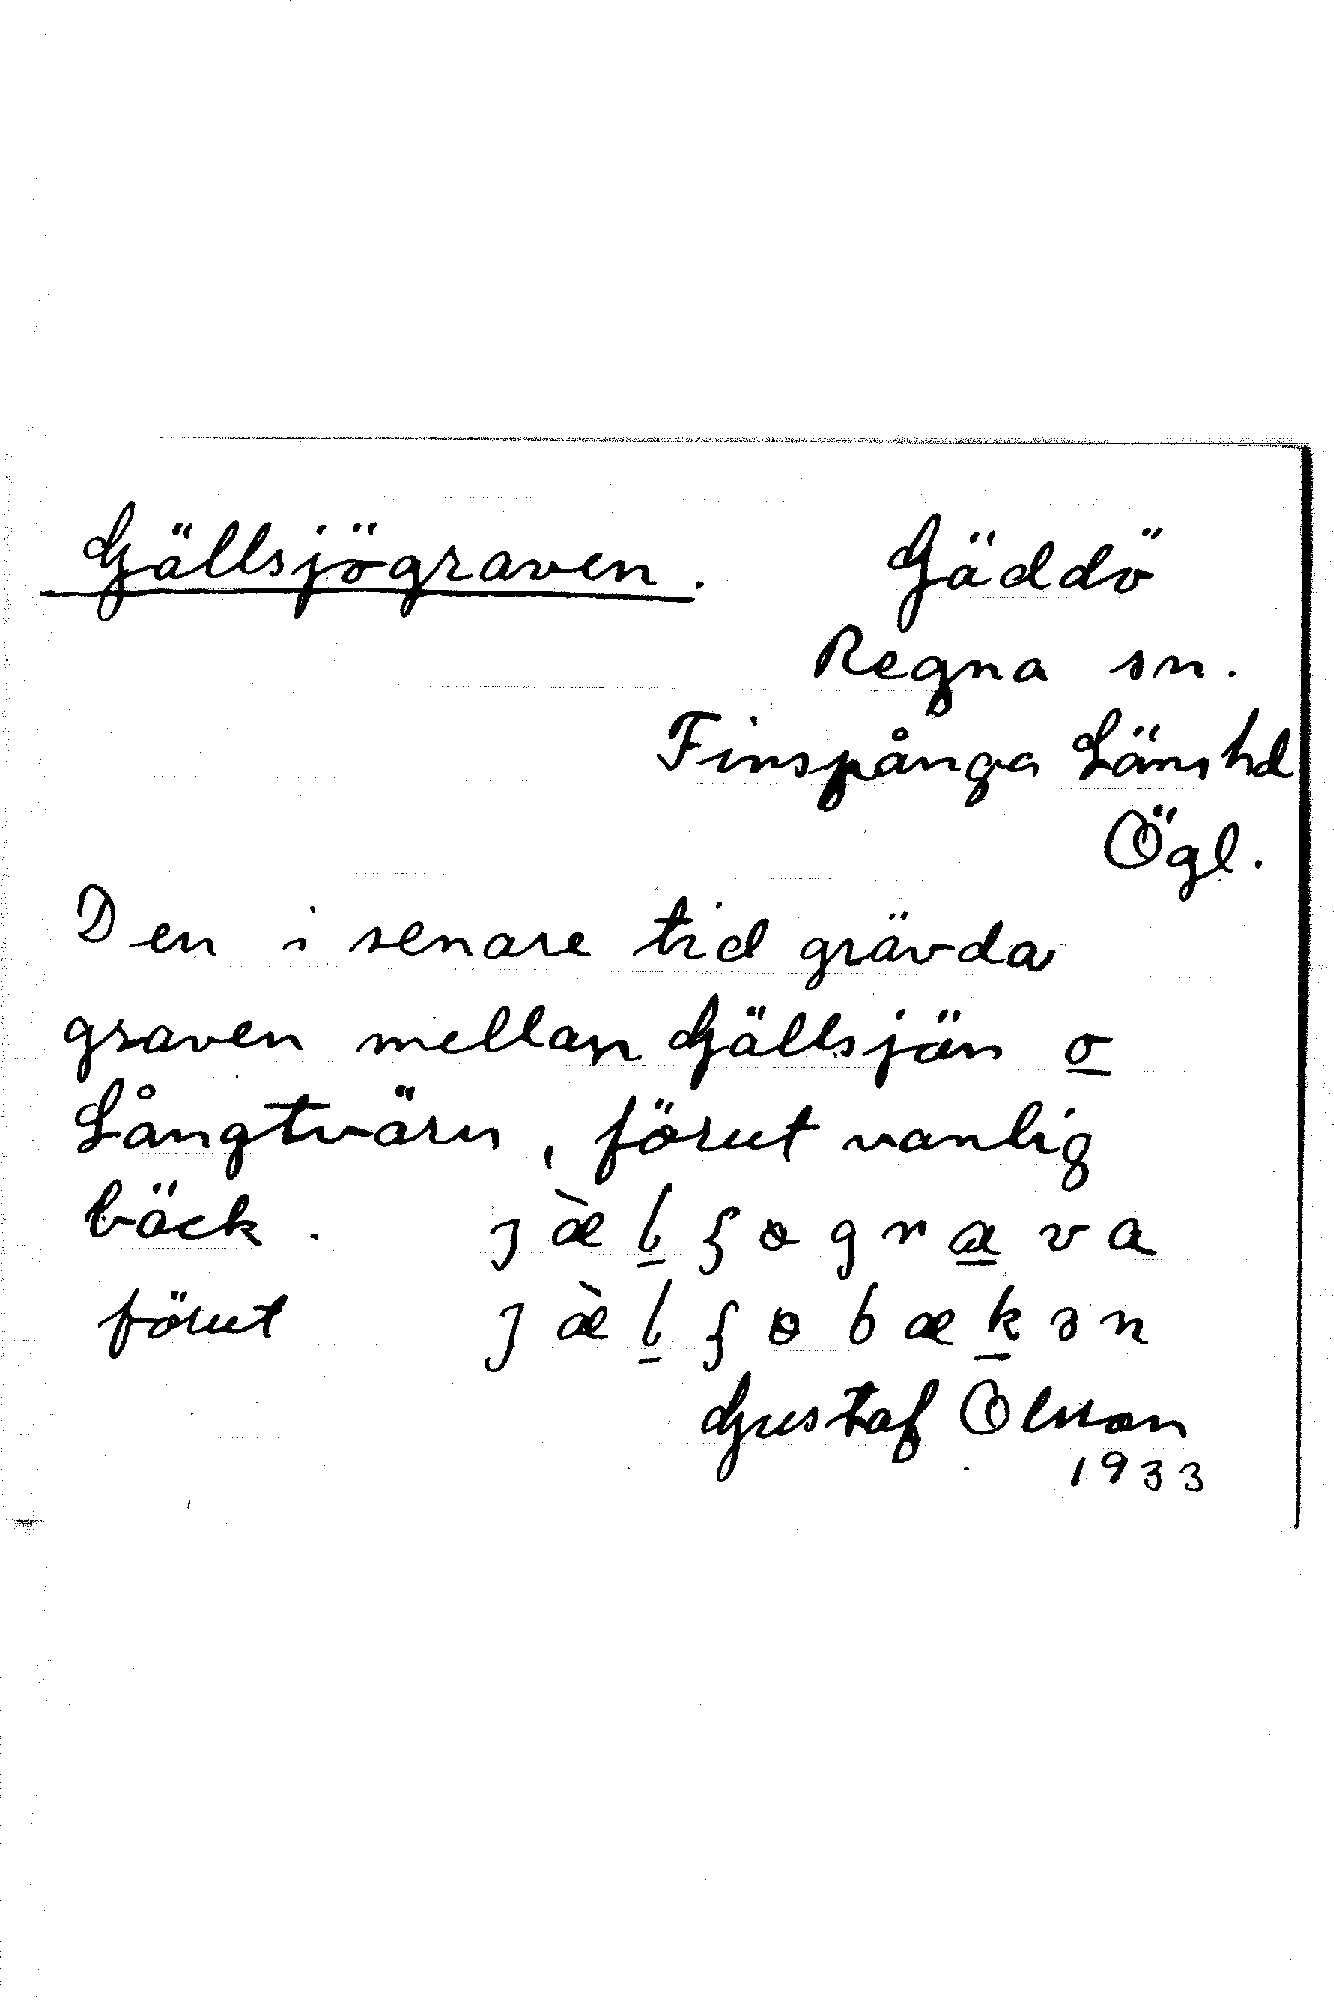 Gällsjögraven. Gäddö
Regna sn.
Finspånga Länshd
Ögl.
Den i senare tid grävda
graven mellan Gällsjön o
Långtvärn, förut vanlig
bäck. jæ̀lʃɵgrava
förut jæ̀lʃɵbækən
Gustaf Olsson
1933